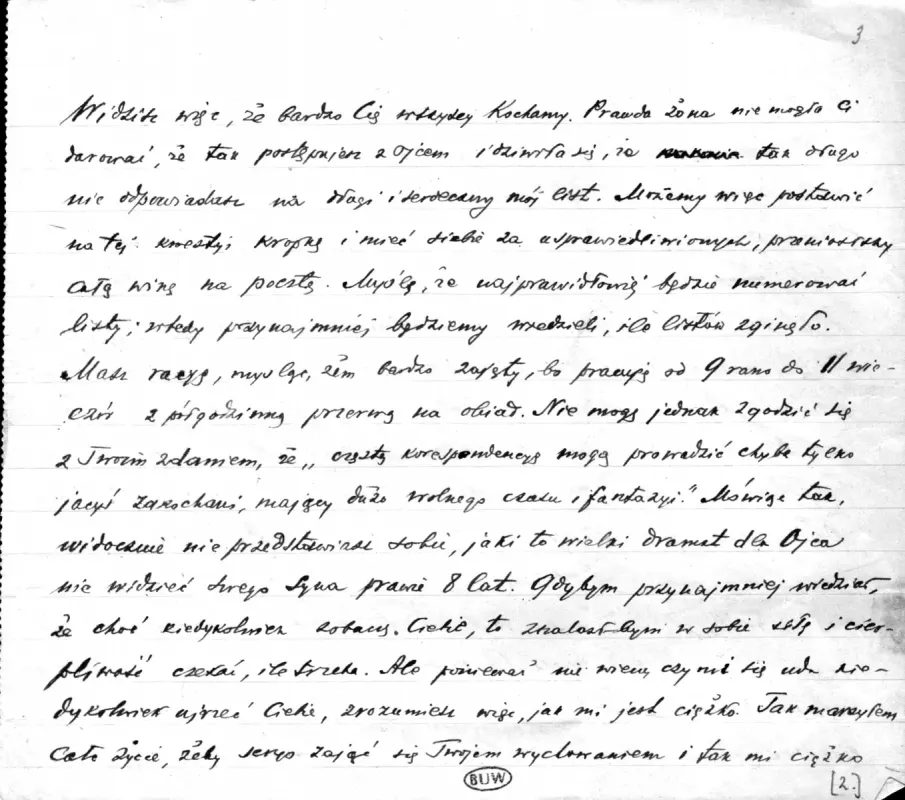 3
Widzisz więc, że bardzo Cię wszyscy Kochamy. Prawda żona nie mogła Ci
darować, że tak postępujesz z Ojcem i dziwiła się, że tak długo
nie odpowiadasz na długi i serdeczny mój list. Możemy więc postawić
na tej kwestyi kropkę i mieć siebie za usprawiedliwionych, przeniósłszy
całą winę na pocztę. Myślę, że najprawidłowiej będzie numerować
listy; wtedy przynajmniej będziemy wiedzieli, ile listów zginęło.
Masz rację, myśląc, żem bardzo zajęty, bo pracuję od 9 rano do 11 wie-
czór z półgodzinną przerwą na obiad. Nie mogę jednak zgodzić się
z Twoim zdaniem, że „częstą korespondencyę mogą prowadzić chyba tylko
jacyś zakochani, mający dużo wolnego czasu i fantazyi." Mówiąc tak,
widocznie nie przedstawiasz sobie, jaki to wielki dramat dla Ojca
nie widzieć swego Syna prawie 8 lat. Gdybym przynajmniej wiedział,
że choć kiedykolwiek zobaczę Ciebie, to znalazłbym w sobie siłę i cier-
pliwość czekać, ile trzeba. Ale ponieważ nie wiem, czy mi się uda kie-
dykolwiek ujrzeć Ciebie, zrozumiesz więc, jak mi jest ciężko. Tak marzyłem
całe życie, żeby seryo zająć się Twojem wychowaniem i tak mi ciężko
BUW
[2.]